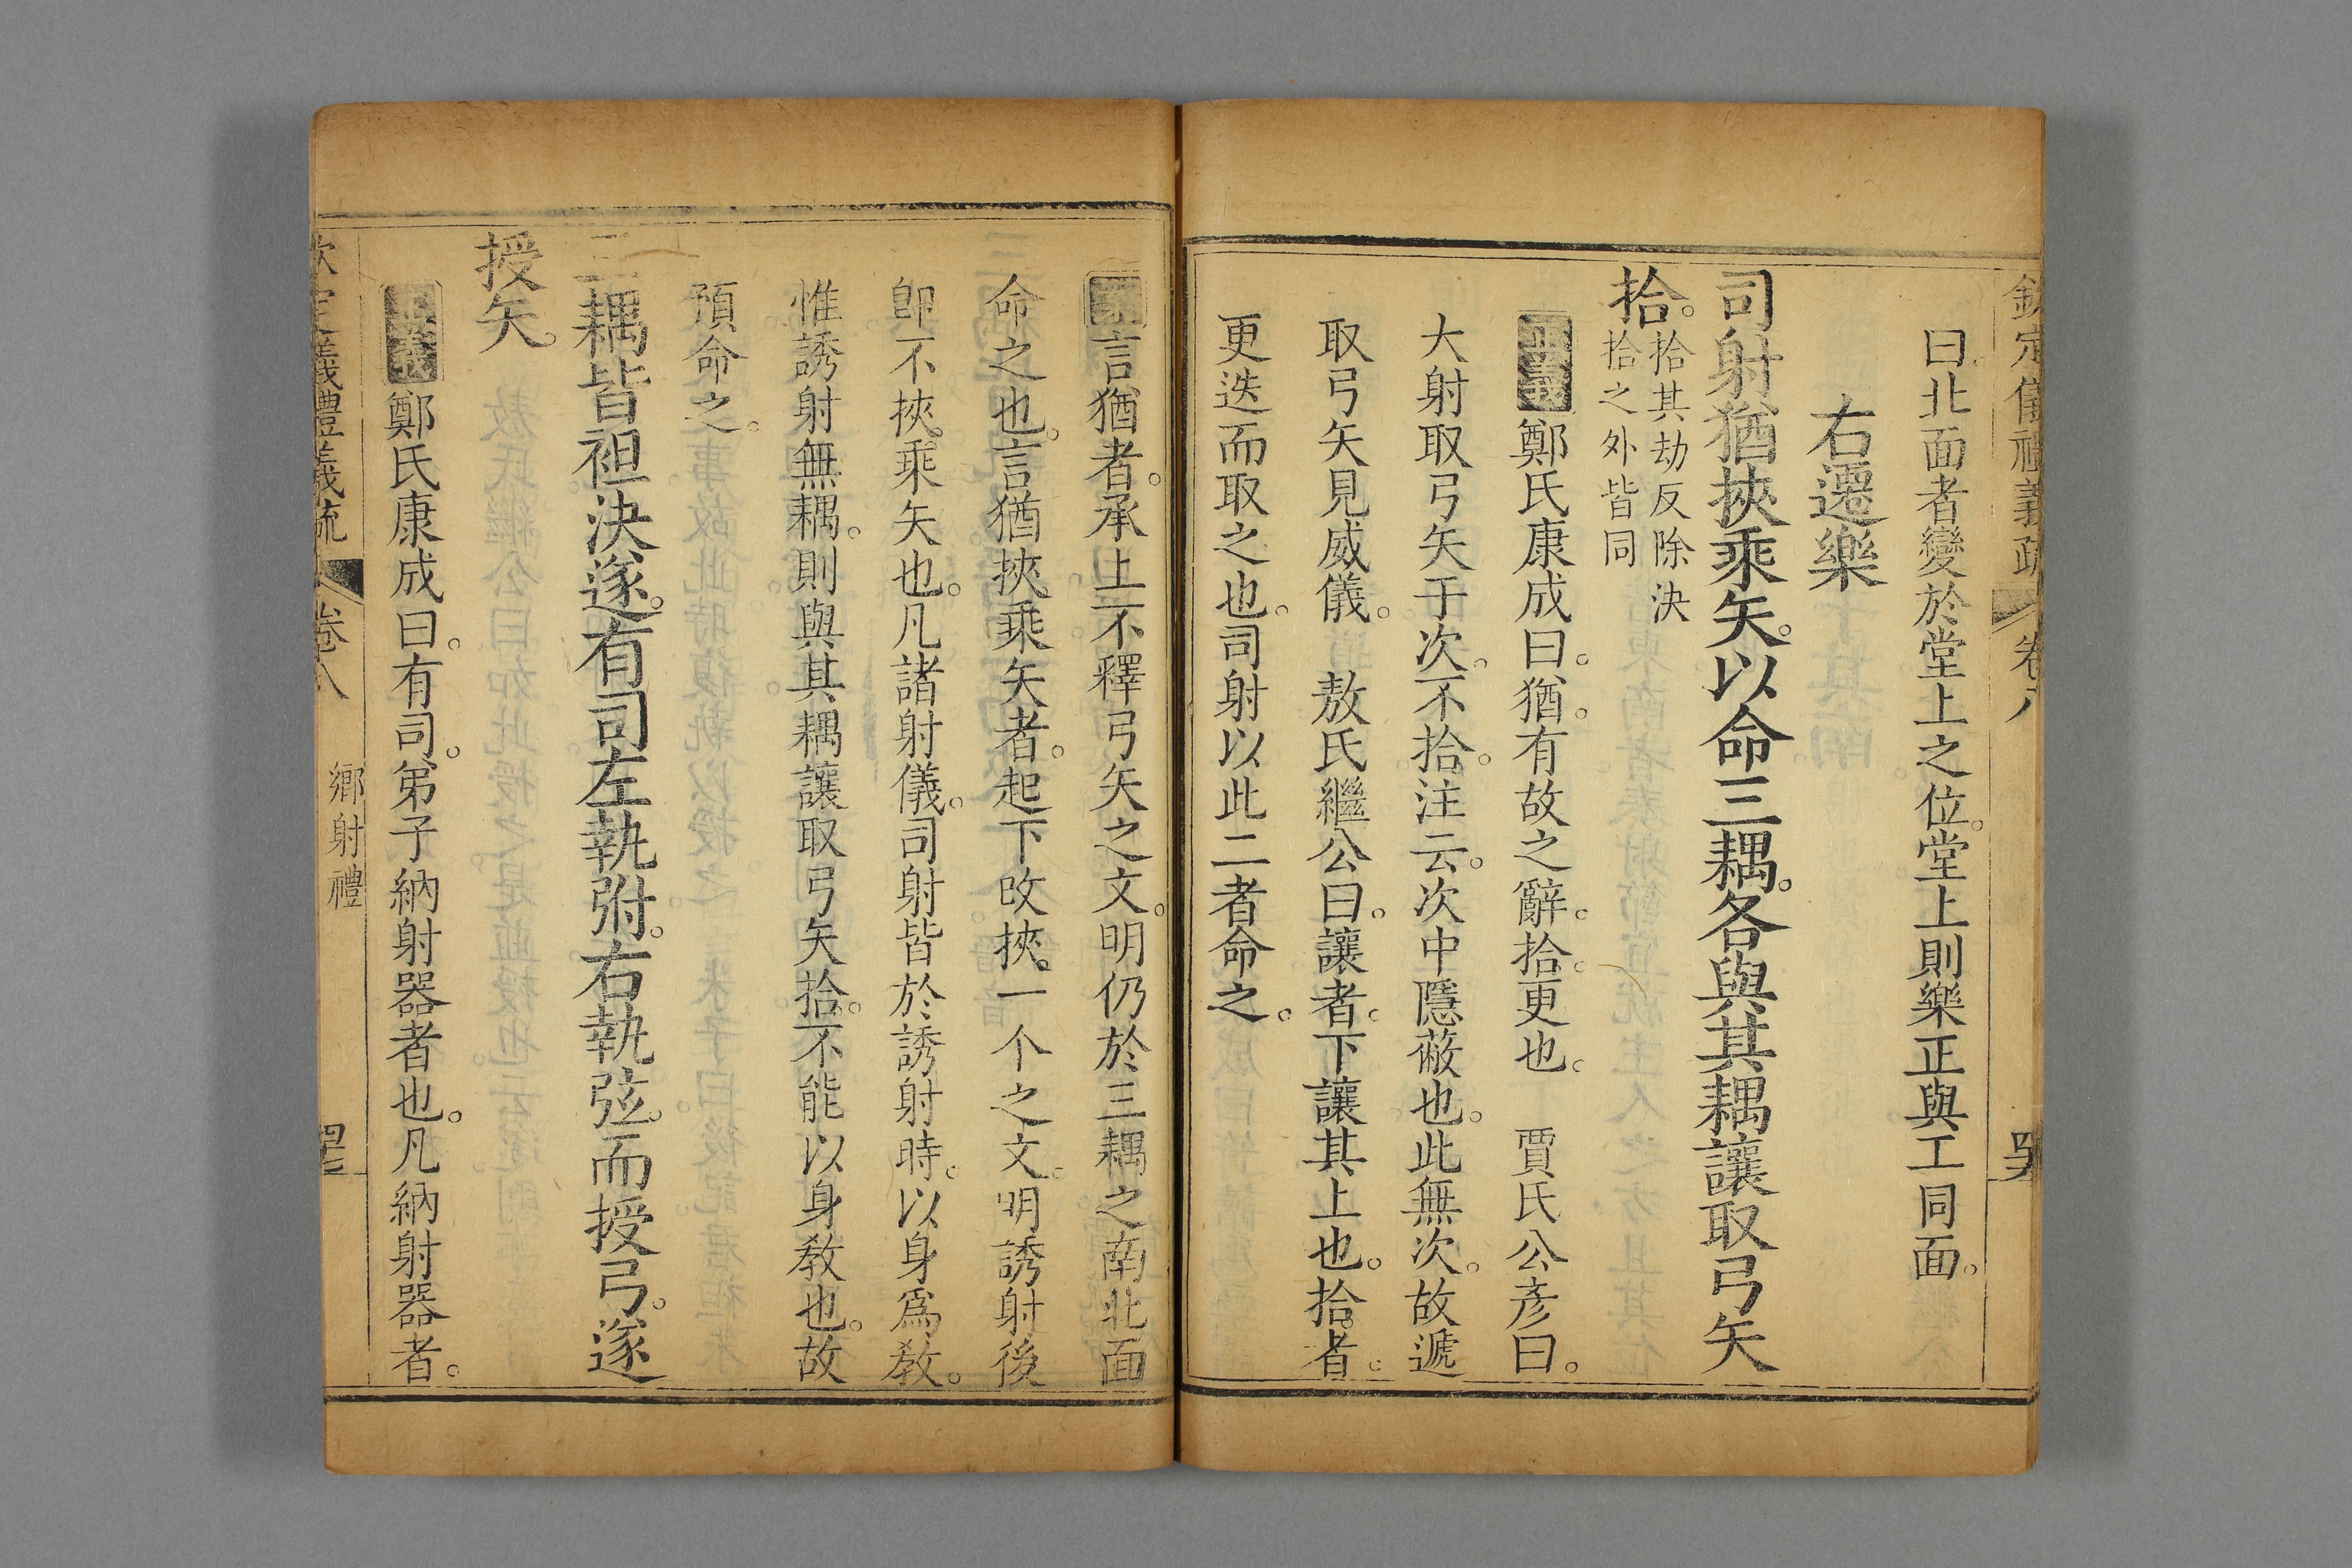 欽定儀禮義疏 卷八
曰。北面者變於堂上之位。堂上則樂正與工同面。
右遷樂
司射猶挾乘矢。以命三耦。各與其耦讓取弓矢
拾。拾其劫反除決
拾之外皆同
正義鄭氏康成曰。猶。有故之辭。拾。更也。 賈氏公彥曰。
大射取弓矢于次。不拾。注云。次中隱蔽也。此無次。故遞
取弓矢見威儀。 敖氏繼公曰。讓者。下讓其上也。拾者。
更迭而取之也。司射以此二者命之。
言猶者。承上不釋弓矢之文。明仍於三耦之南北面
命之也。言猶挾乘矢者。起下改挾。一个之文。明誘射後
卽不挾。乘矢也。凡諸射儀。司射皆於誘射時。以身爲敎。
惟誘射無耦。則與其耦讓取弓矢拾。不能以身敎也。故
預命之。
三耦皆袒決遂。有司左執弣。右執弦。而授弓。遂
授矢。
正義鄭氏康成曰。有司。弟子納射器者也。凡納射器者。
欽定儀禮義疏 卷八 鄉射禮